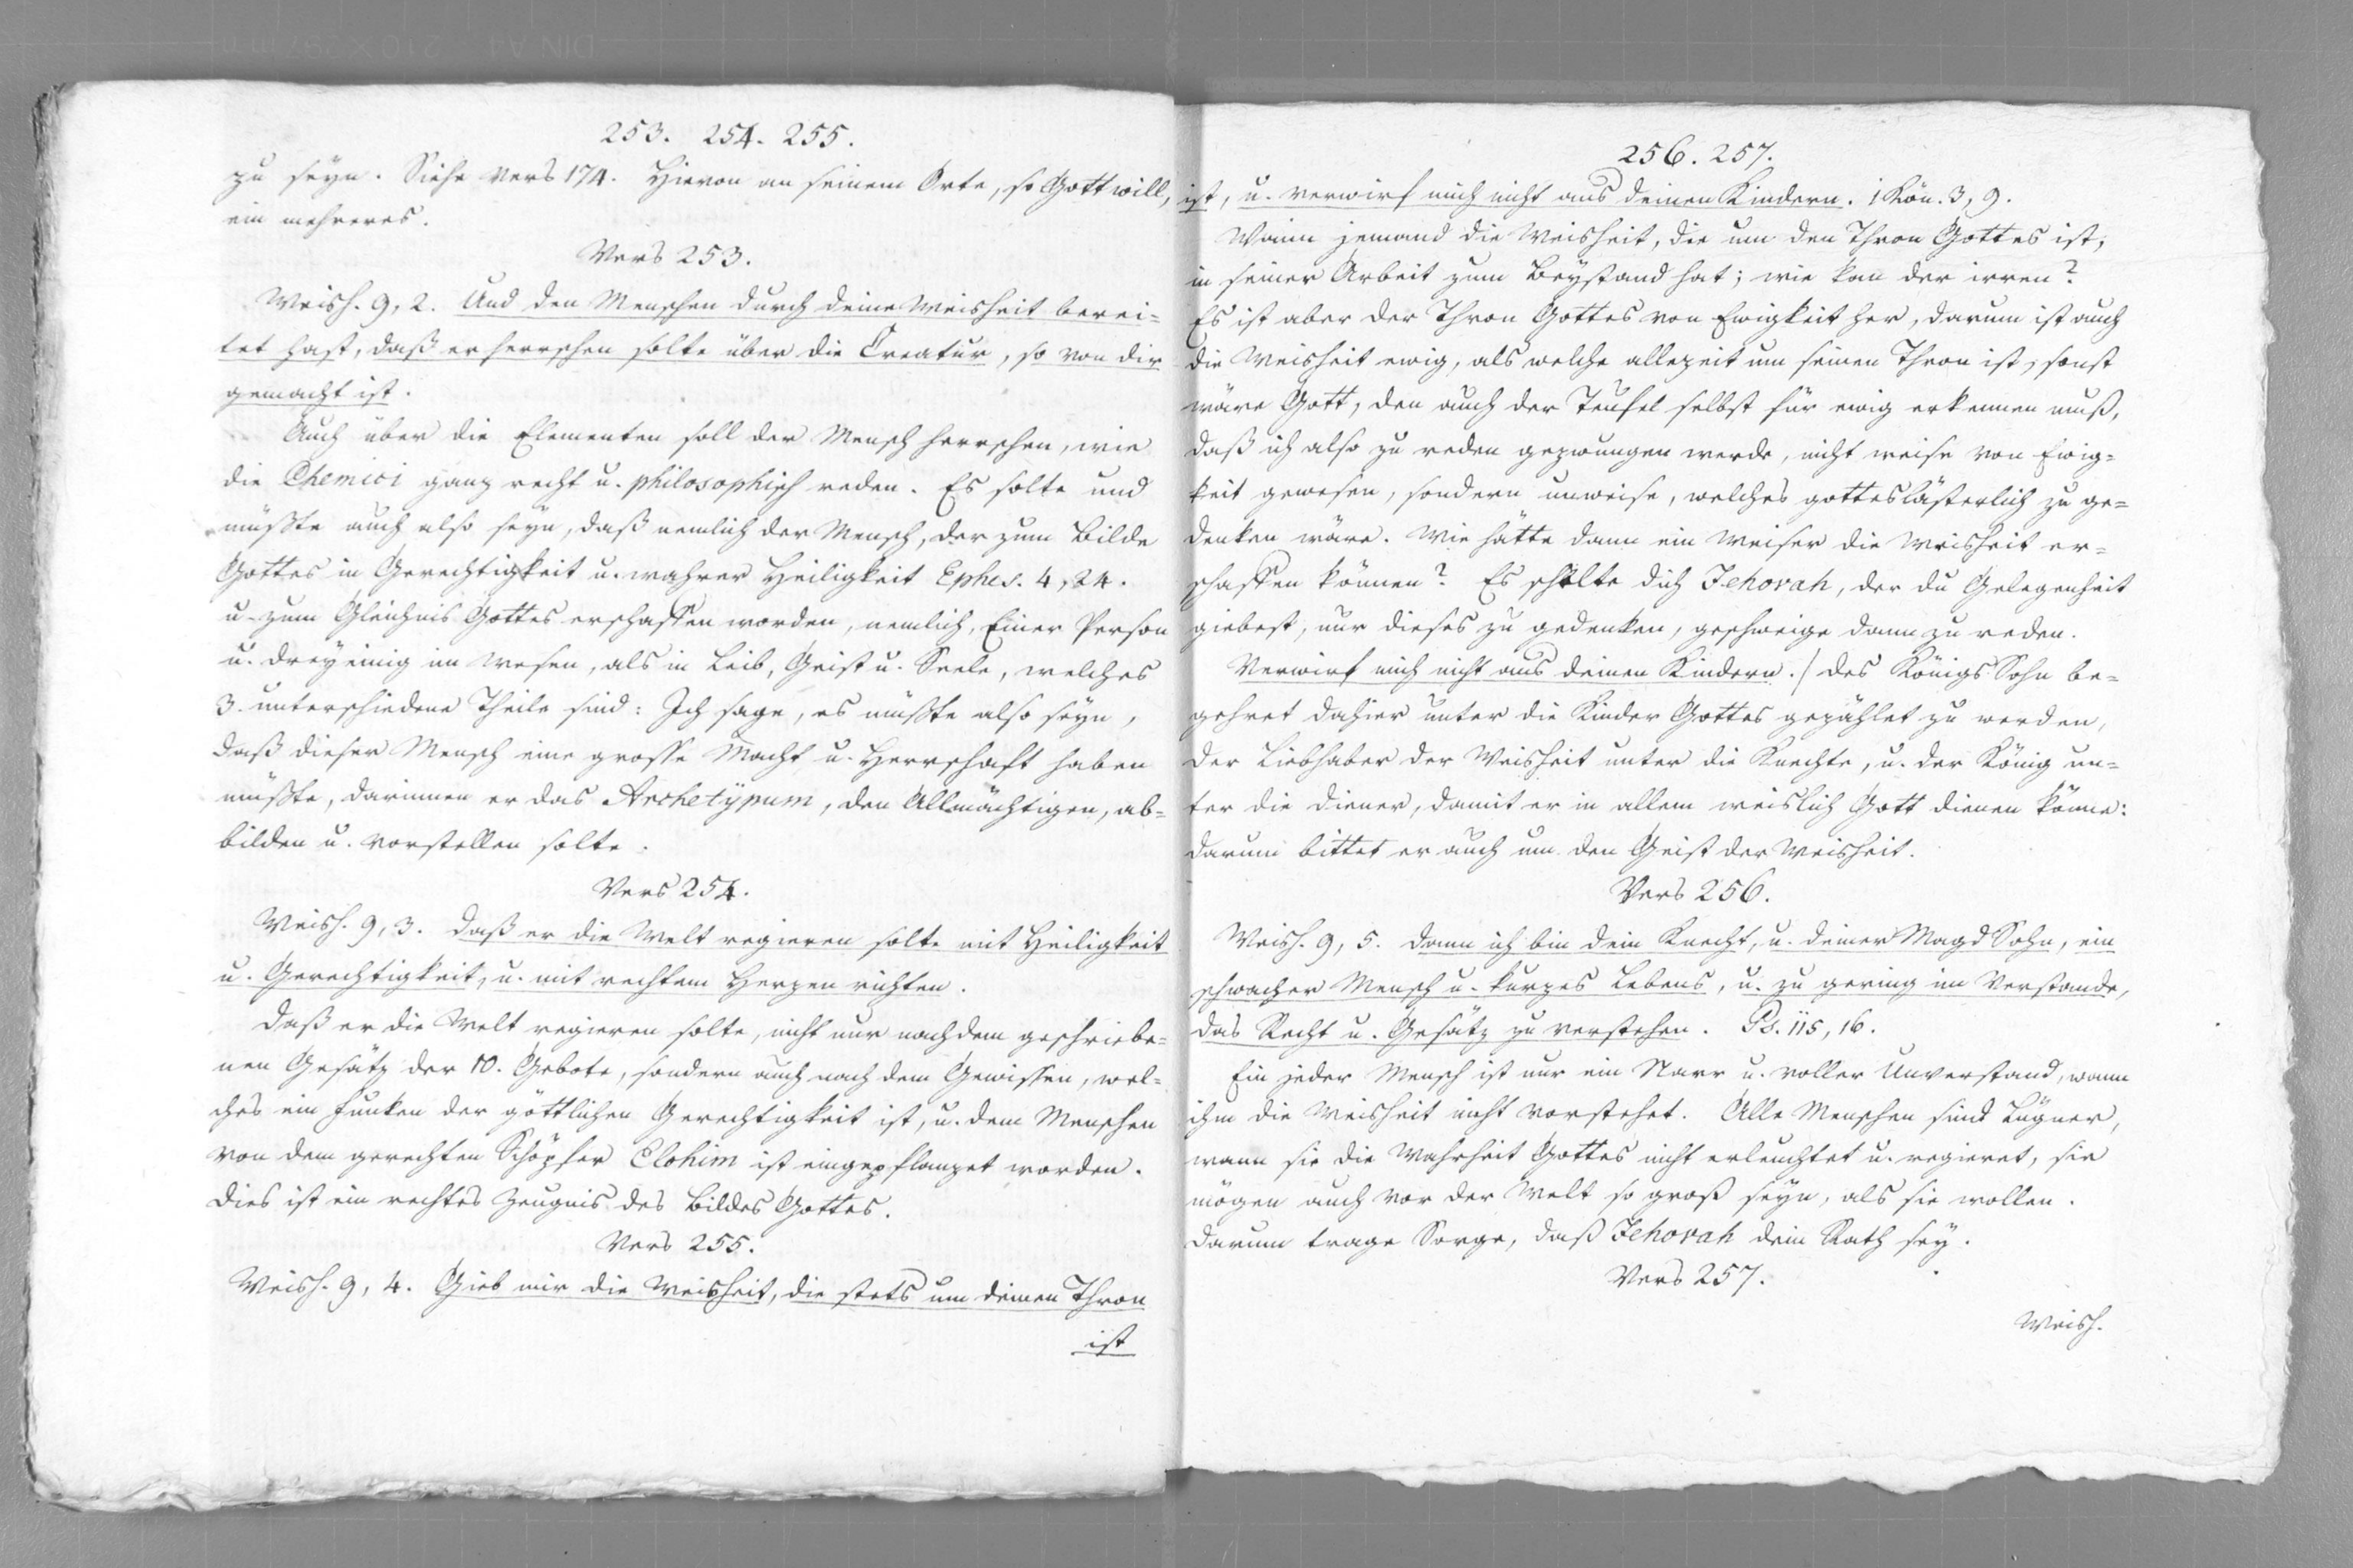 253. 254. 255.
zu seyn. Siehe Vers 174. Hievon an seinem Orte, so Gott will,
ein mehreres.
Vers 253.
Weish. 9, 2. Und den Menschen durch deine Weisheit berei=
tet hast, daß er herrschen solte über die Creatur, so von dir
gemacht ist.
Auch über die Elementen soll der Mensch herrschen, wie
die Chemici ganz recht u. philosophisch reden. Es solte und
müsste auch also seyn, daß nemlich der Mensch, der zum Bilde
Gottes in Gerechtigkeit u. wahrer Heiligkeit Ephes. 4, 24.
u. zum Gleichnis Gottes erschaffen worden, nemlich, Einer Person
u. dreyeinig im Wesen, als in Leib, Geist u. Seele, welches
3. unterschiedene Theile sind: Ich sage, es müsste also seyn,
daß dieser Mensch eine grosse Macht u. Herrschaft haben
müsste, darinnen er das Archetypum, den Allmächtigen, ab=
bilden u. vorstellen solte.
Vers 254.
Weish. 9, 3. Daß er die Welt regieren solte mit Heiligkeit
u. Gerechtigkeit, u. mit rechtem Herzen richten.
Daß er die Welt regieren solte, nicht nur nach dem geschriebe=
nen Gesätz der 10. Gebote, sondern auch nach dem Gewissen, wel=
ches ein Funken der göttlichen Gerechtigkeit ist, u. dem Menschen
von dem gerechten Schöpfer Elohim ist eingepflanzet worden.
Dies ist ein rechtes Zeugnis des Bildes Gottes.
Vers 255.
Weish. 9, 4. Gieb mir die Weisheit, die stets um deinen Thron
ist
256. 257.
ist, u. verwirf mich nicht aus deinen Kindern. 1 Kön. 3, 9.
Wann jemand die Weisheit, die um den Thron Gottes ist,
in seiner Arbeit zum Beystand hat; wie kan der irren?
Es ist aber der Thron Gottes von Ewigkeit her, darum ist auch
die Weisheit ewig, als welche allezeit um seinen Thron ist, sonst
wäre Gott, den auch der Teufel selbst für ewig erkennen muß,
daß ich also zu reden gezwungen werde, nicht weise von Ewig=
keit gewesen, sondern unweise, welches gotteslästerlich zu ge=
denken wäre. Wie hätte dann ein Weiser die Weisheit er=
schaffen können? Es schelte dich Jehovah, der du Gelegenheit
giebest, nur dieses zu gedenken, geschweige dann zu reden.
Verwirf mich nicht aus deinen Kindern./ Des Königs Sohn be=
gehret dahier unter die Kinder Gottes gezählet zu werden,
der Liebhaber der Weisheit unter die Knechte, u. der König un=
ter die Diener, damit er in allem weislich Gott dienen könne:
darum bittet er auch um den Geist der Weisheit.
Vers 256.
Weish. 9, 5. Dann ich bin dein Knecht, u. deiner Magd Sohn, ein
schwacher Mensch u. kurzes Lebens, u. zu gering im Verstande,
das Recht u. Gesätz zu verstehen. Ps. 115, 16.
Ein jeder Mensch ist nur ein Narr u. voller Unverstand, wann
ihm die Weisheit nicht vorstehet. Alle Menschen sind Lügner,
wann sie die Wahrheit Gottes nicht erleuchtet u. regieret, sie
mögen auch vor der Welt so groß seyn, als sie wollen.
Darum trage Sorge, daß Jehovah dein Rath sey.
Vers 257.
Weish.